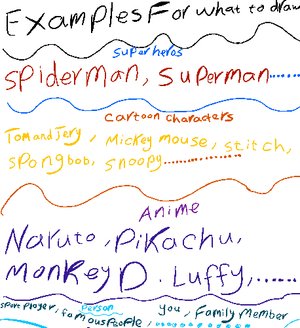 Examples For what to draw
Super heros
Spiderman, Superman......
Cartoon Characters
Tom and Jery, Mickey mouse, stitch,
spongbob, snoopy............
Anime
Naruto, Pikachu,
Monkey D. Luffy,......
Person
sport player, famous people, you, Family Member
............